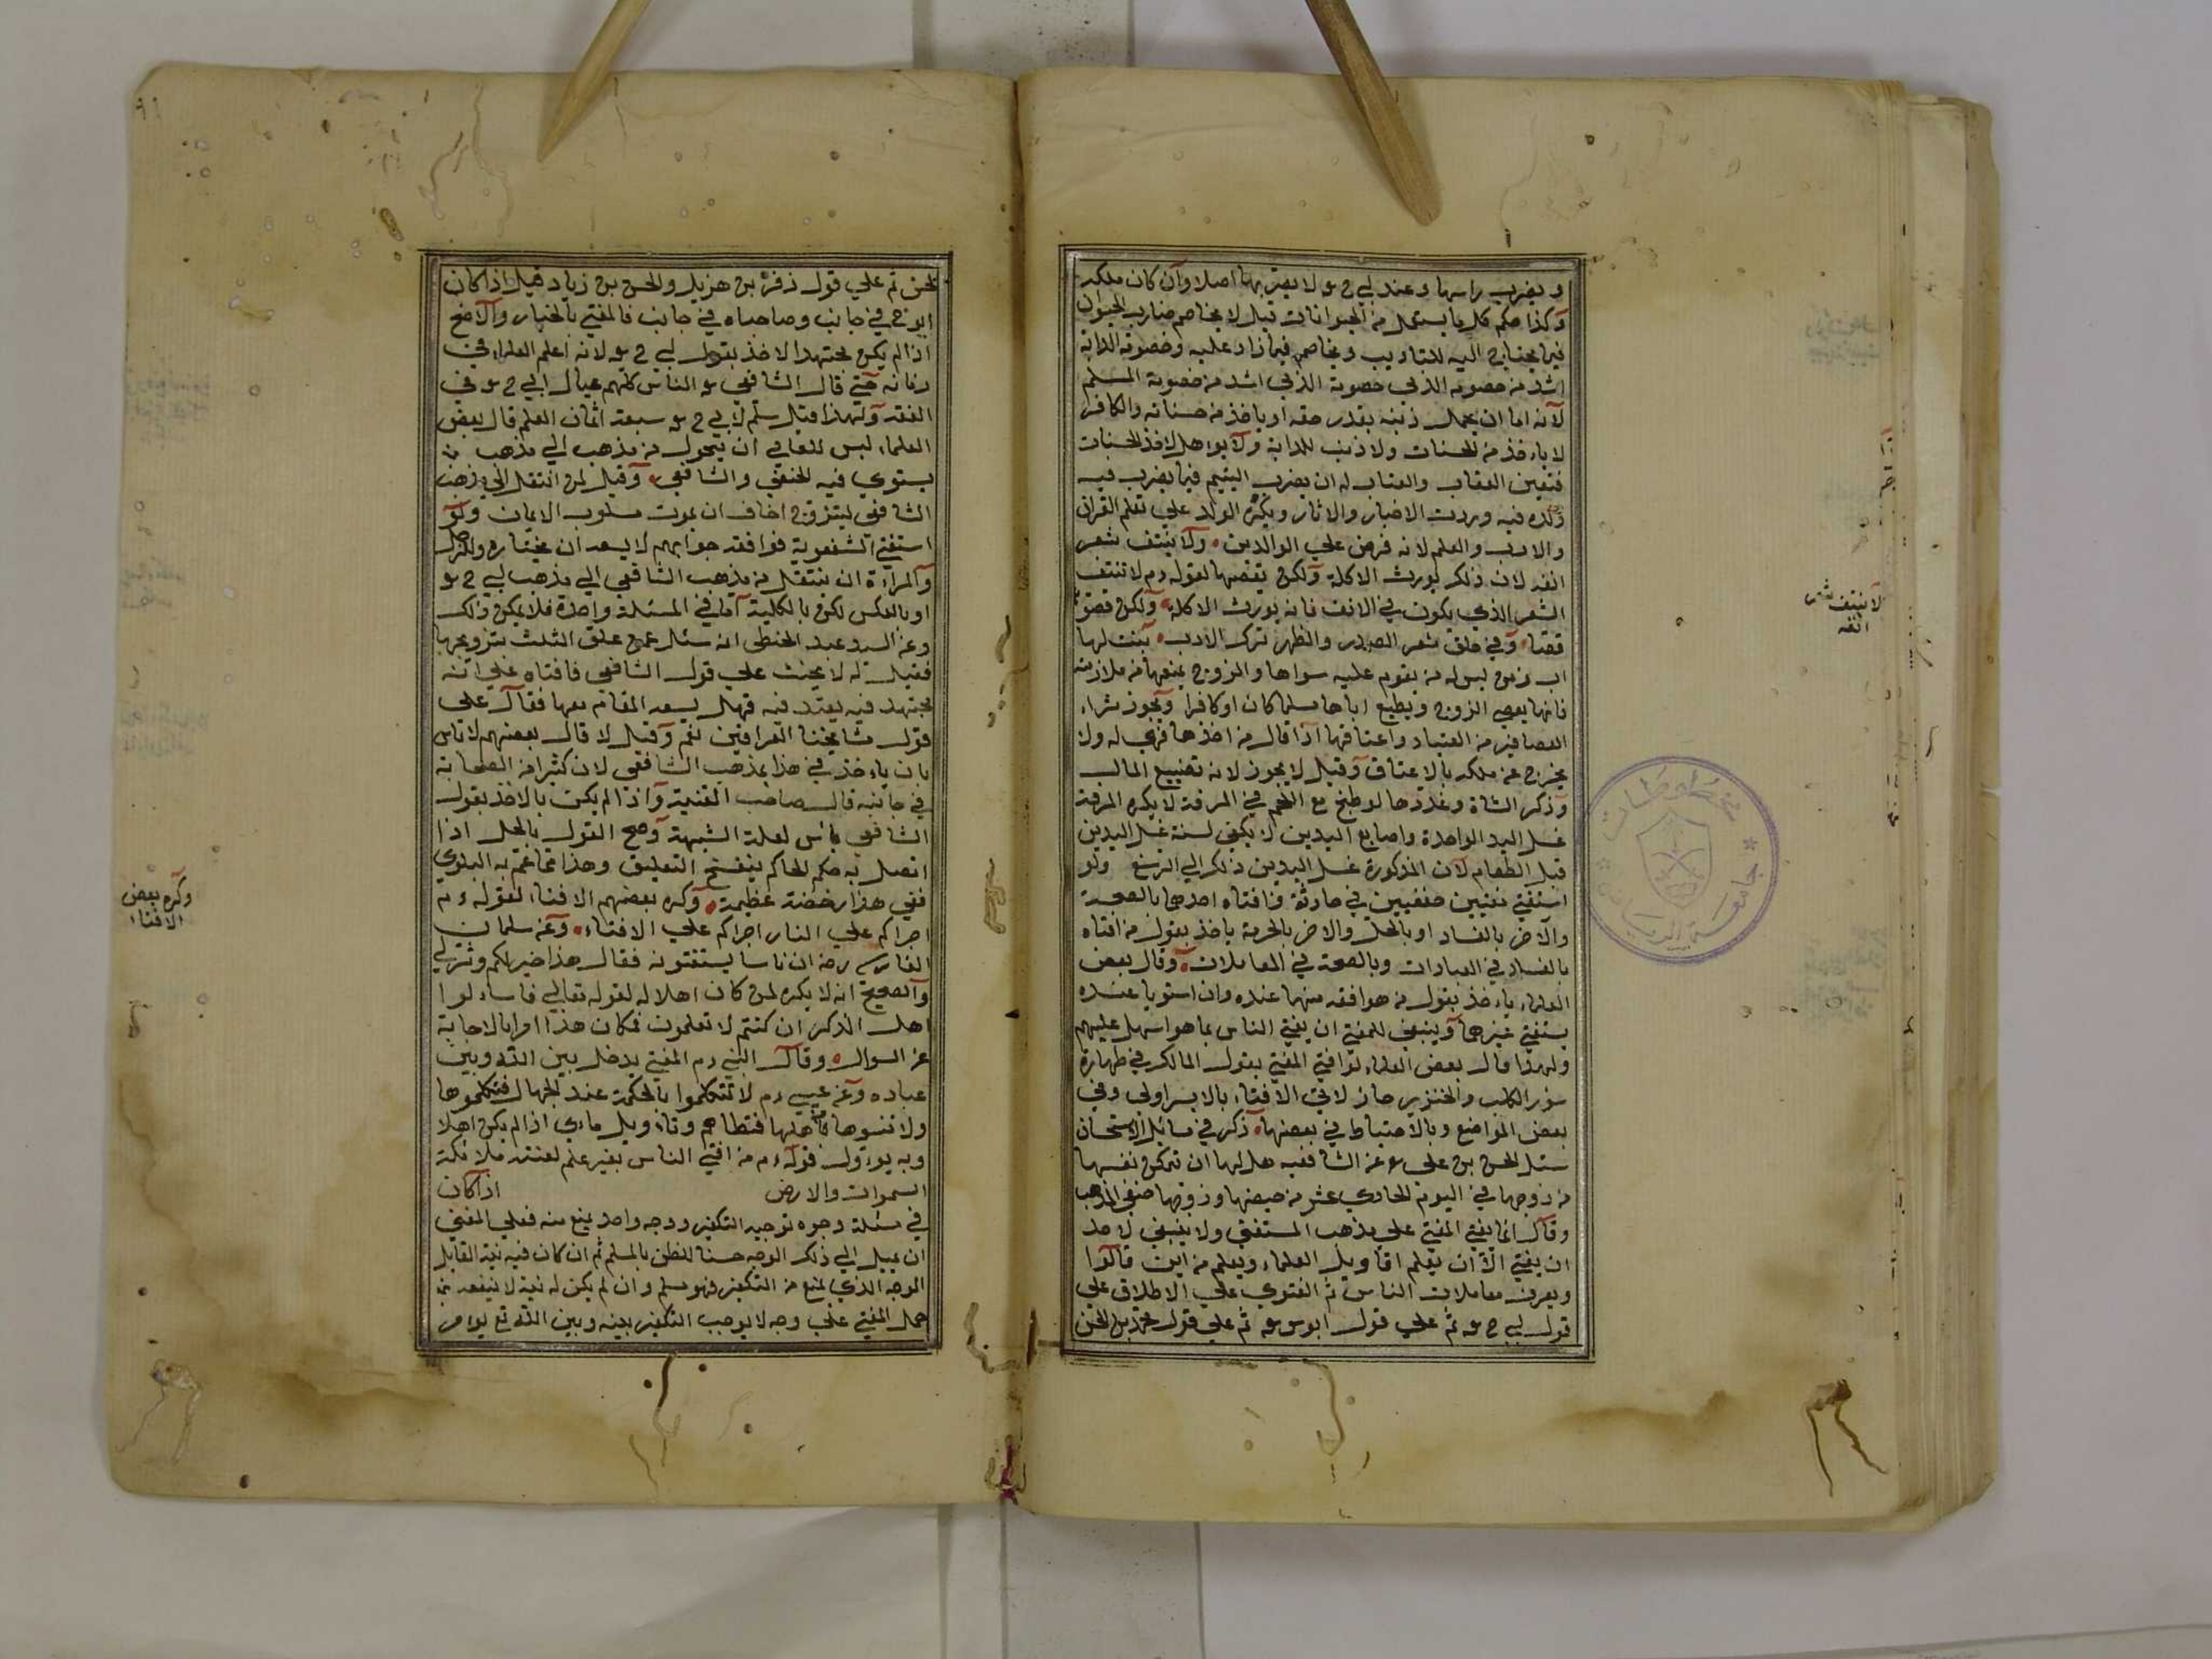 و يضرب راسها وعند ابي ح س لا يضربها اصلا وان كان ملكه
وكذا حكم كل ما يستعمل من الحيوانات قيل لا يخاصم ضارب الحيوان
فيما يحتاج اليه للتاديب ويخاصم فيما زاد عليه وخصومة الدابة
اشد من خصومة الذمي خصومة الذمي اشد من خصومة المسلم
لانه اما ان يحمل ذنبه بقدر حقه او ياخذ من حسناته والكافر
لا ياخذ من الحسنات ولا ذنب للدابة ولا يواهل لاخذ الحسنات
فتعين العقاب والعتاب له ان يضرب اليتيم فيما يضرب فيه
ولده فيه وردت الاخبار والاثار ويكره الولد علي تعلم القران
والادب والعلم لانه فرض علي الوالدين ولا ينتف شعر
انفه لان ذلك يورث الاكلة ولكن يقصها لقوله دم لا تنتف
الشعر الذي يكون في الانف فانه يورث الاكلة ولكن قصوه
قصا وفي حلق شعر الصدر والظهر ترك الادب بنت لها
اب زمن ليس له من يقوم عليه سواها والزوج يمنعها من ملازمته
فانها يعصي الزوج ويطيع اباها مسلما كان او كافرا ويجوز شراء
العصافير من الصياد واعتاقها اذا قال من اخذها فهي له ولا
يخرج عن ملكه بالاعتاق وقيل لا يجوز لانه تضييع المال
وذكر الشاة وغددها لو طبخ مع اللحم في المرقة لا يكره المرقة
غسل اليد الواحدة واصابع اليدين لا يكفي لسنة غسل اليدين
قبل الطعام لان المذكورة غسل اليدين ذلك الي الرسغ ولو
استفتي مفتيين حنفيين في حادثة فافتاه احدهما بالصحة
والاخر بالفساد او بالحل والاخر بالحرمة ياخذ بقول من افتاه
بالفساد في العبادات وبالصحة في المعاملات وقال بعض
العلماء ياخذ بقول من هو افقه منهما عنده وان استويا عنده
يستفتي غيرهما وينبغي للمفتي ان يفتي الناس بما هو اسهل عليهم
ولهذا قال بعض العلماء لو افتي المفتي بقول المالك في طهارة
سؤر الكلب والخنزير جاز لان الافتاء بالايسر اولى وفي
بعض المواضع وبالاحتياط في بعضها ذكر في مسائل الاستحسان
سئل الحسن بن علي ع عن الشافعيه هل لها ان تمكن نفسها
من زوجها في اليوم الحادي عشر من حيضها وزوجها حنفي المذهب
وقال انما يفتي المفتي علي مذهب المستفتي ولا ينبغي لاحد
ان يفتي الا ان يعلم اقاويل العلماء ويعلم من اين قالوا
ويعرف معاملات الناس ثم الفتوي علي الاطلاق علي
قول ابي ح س ثم علي قول ابو س س ثم علي قول محمد بن الحسن
لا ينتف شعر
انفه
لحسن ثم علي قول زفر بن هزيل والحسن بن زياد قيل اذا كان
ابو ح في جانب وصاحباه في جانب فالمفتي بالخيار والاصح
اذا لم يكن مجتهدا الاخذ بقول ابي ح س لانه اعلم العلماء في
زمانه حتي قال الشافعي س الناس كلهم عيال ابي ح س في
الفقه ولهذا قيل سلم لابي ح س سبعة اثمان العلم قال بعض
العلماء ليس للعامي ان يتحول من مذهب الي مذهب
يستوي فيه الحنفي والشافعي وقيل لمن انتقل الي مذهب
الشافعي ليتزوج اخاف ان يموت مسلوب الايمان ولو
استفتي الشفعوية فوافقه جوابهم لا يسعه ان يختاره وللرجل
والمراة ان ينتقل من مذهب الشافعي الي مذهب ابي ح س
او بالعكس لكن بالكلية اما في المسئلة واحدة فلا يمكن ذلك
وعن السيد عبد الخنطي انه سئل عمن علق الثلث بتزوجها
فقيل له لا يحنث علي قول الشافعي فافتاه علي انه
مجتهد فيه يعتد فيه فهل يسعه المقام معها فقال علي
قول مشايخنا العراقيين نعم وقيل لا قال بعضهم لا باس
بان ياخذ في هذا بمذهب الشافعي لان كثيرا من الصحابة
في جانبه قال صاحب القنية واذا لم يكن بالاخذ بقول
الشافعي باس لعلة الشبهة وصح القول بالحل اذا
اتصل به حكم الحاكم بنفسخ التعليق وهذا مما عم به البلوي
ففي هذا رخصة عظيمة وكره بعضهم الافتاء لقوله دم
اجراكم علي النار اجراكم علي الافتاء وعن سلمان
الفارسي رضه ان ناسا يستفتونه فقال هذا خير لكم وشر لي
والصحيح انه لا يكره لمن كان اهلا له لقوله تعالي فاسئلوا
اهل الذكر ان كنتم لا تعلمون فكان هذا امرا بالاجابة
عن السوال وقال النبي دم المفتي يدخل بين الله وبين
عباده وعن عيسي دم لا تتكلموا بالحكمة عند الجهال فتكلموها
ولا تنسوها من اهلها فتظلموهم وتاويل ماروي اذا لم يكن اهلا
وبه يوءول قوله دم من افتي الناس بغير علم لعنته ملائكة
السموات والارض اذا كان
في مسئلة وجوه توجيه التكفير ووجه واحد يمنع منه فعلي المفتي
ان يميل الي ذلك الوجه حسنا للظن بالمسلم ثم ان كان فيه نية القايل
الوجه الذي لمنع من التكفير فهو مسلم وان لم يكن له نية لا ينفعه
حمل المفتي علي وجه لا يوجب التكفير بينه وبين الله تع يوامر
وكره بعض
الافتاء